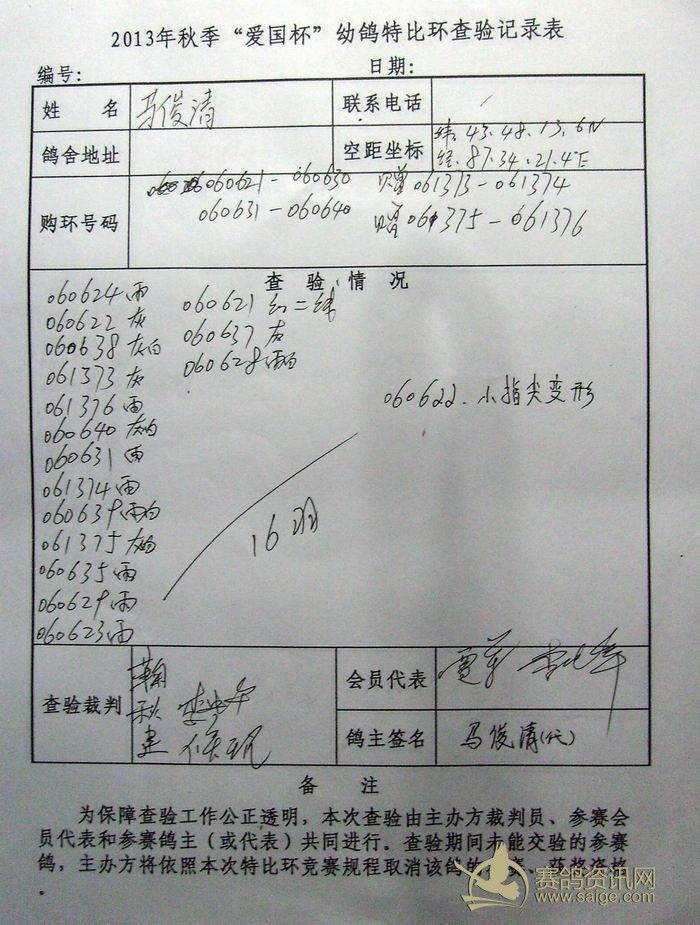 2013年秋季“爱国杯”幼鸽特比环查验记录表
编号: 日期:
姓 名 马俊清 联系电话
鸽舍地址 空距坐标 纬.43.48.13.6N
经.87.34.21.4E
购环号码 060621-060630 赠061373-061374
060631-060640 赠061375-061376
查 验 情 况
060624雨 060621红二线
060622灰 060637灰
060638灰白 060628雨白
061373灰
061376雨 060622.小指尖变形
060640灰白
060631雨
061374雨
060639雨白 16羽
061375灰白
060635雨
060629雨
060623雨
查验裁判 会员代表
鸽主签名 马俊清(代)
备 注
为保障查验工作公正透明，本次查验由主办方裁判员、参赛会
员代表和参赛鸽主（或代表）共同进行。查验期间未能交验的参赛
鸽，主办方将依照本次特比环竞赛规程取消该鸽的参赛、获奖资格
。
赛鸽资讯网
www.saige.com